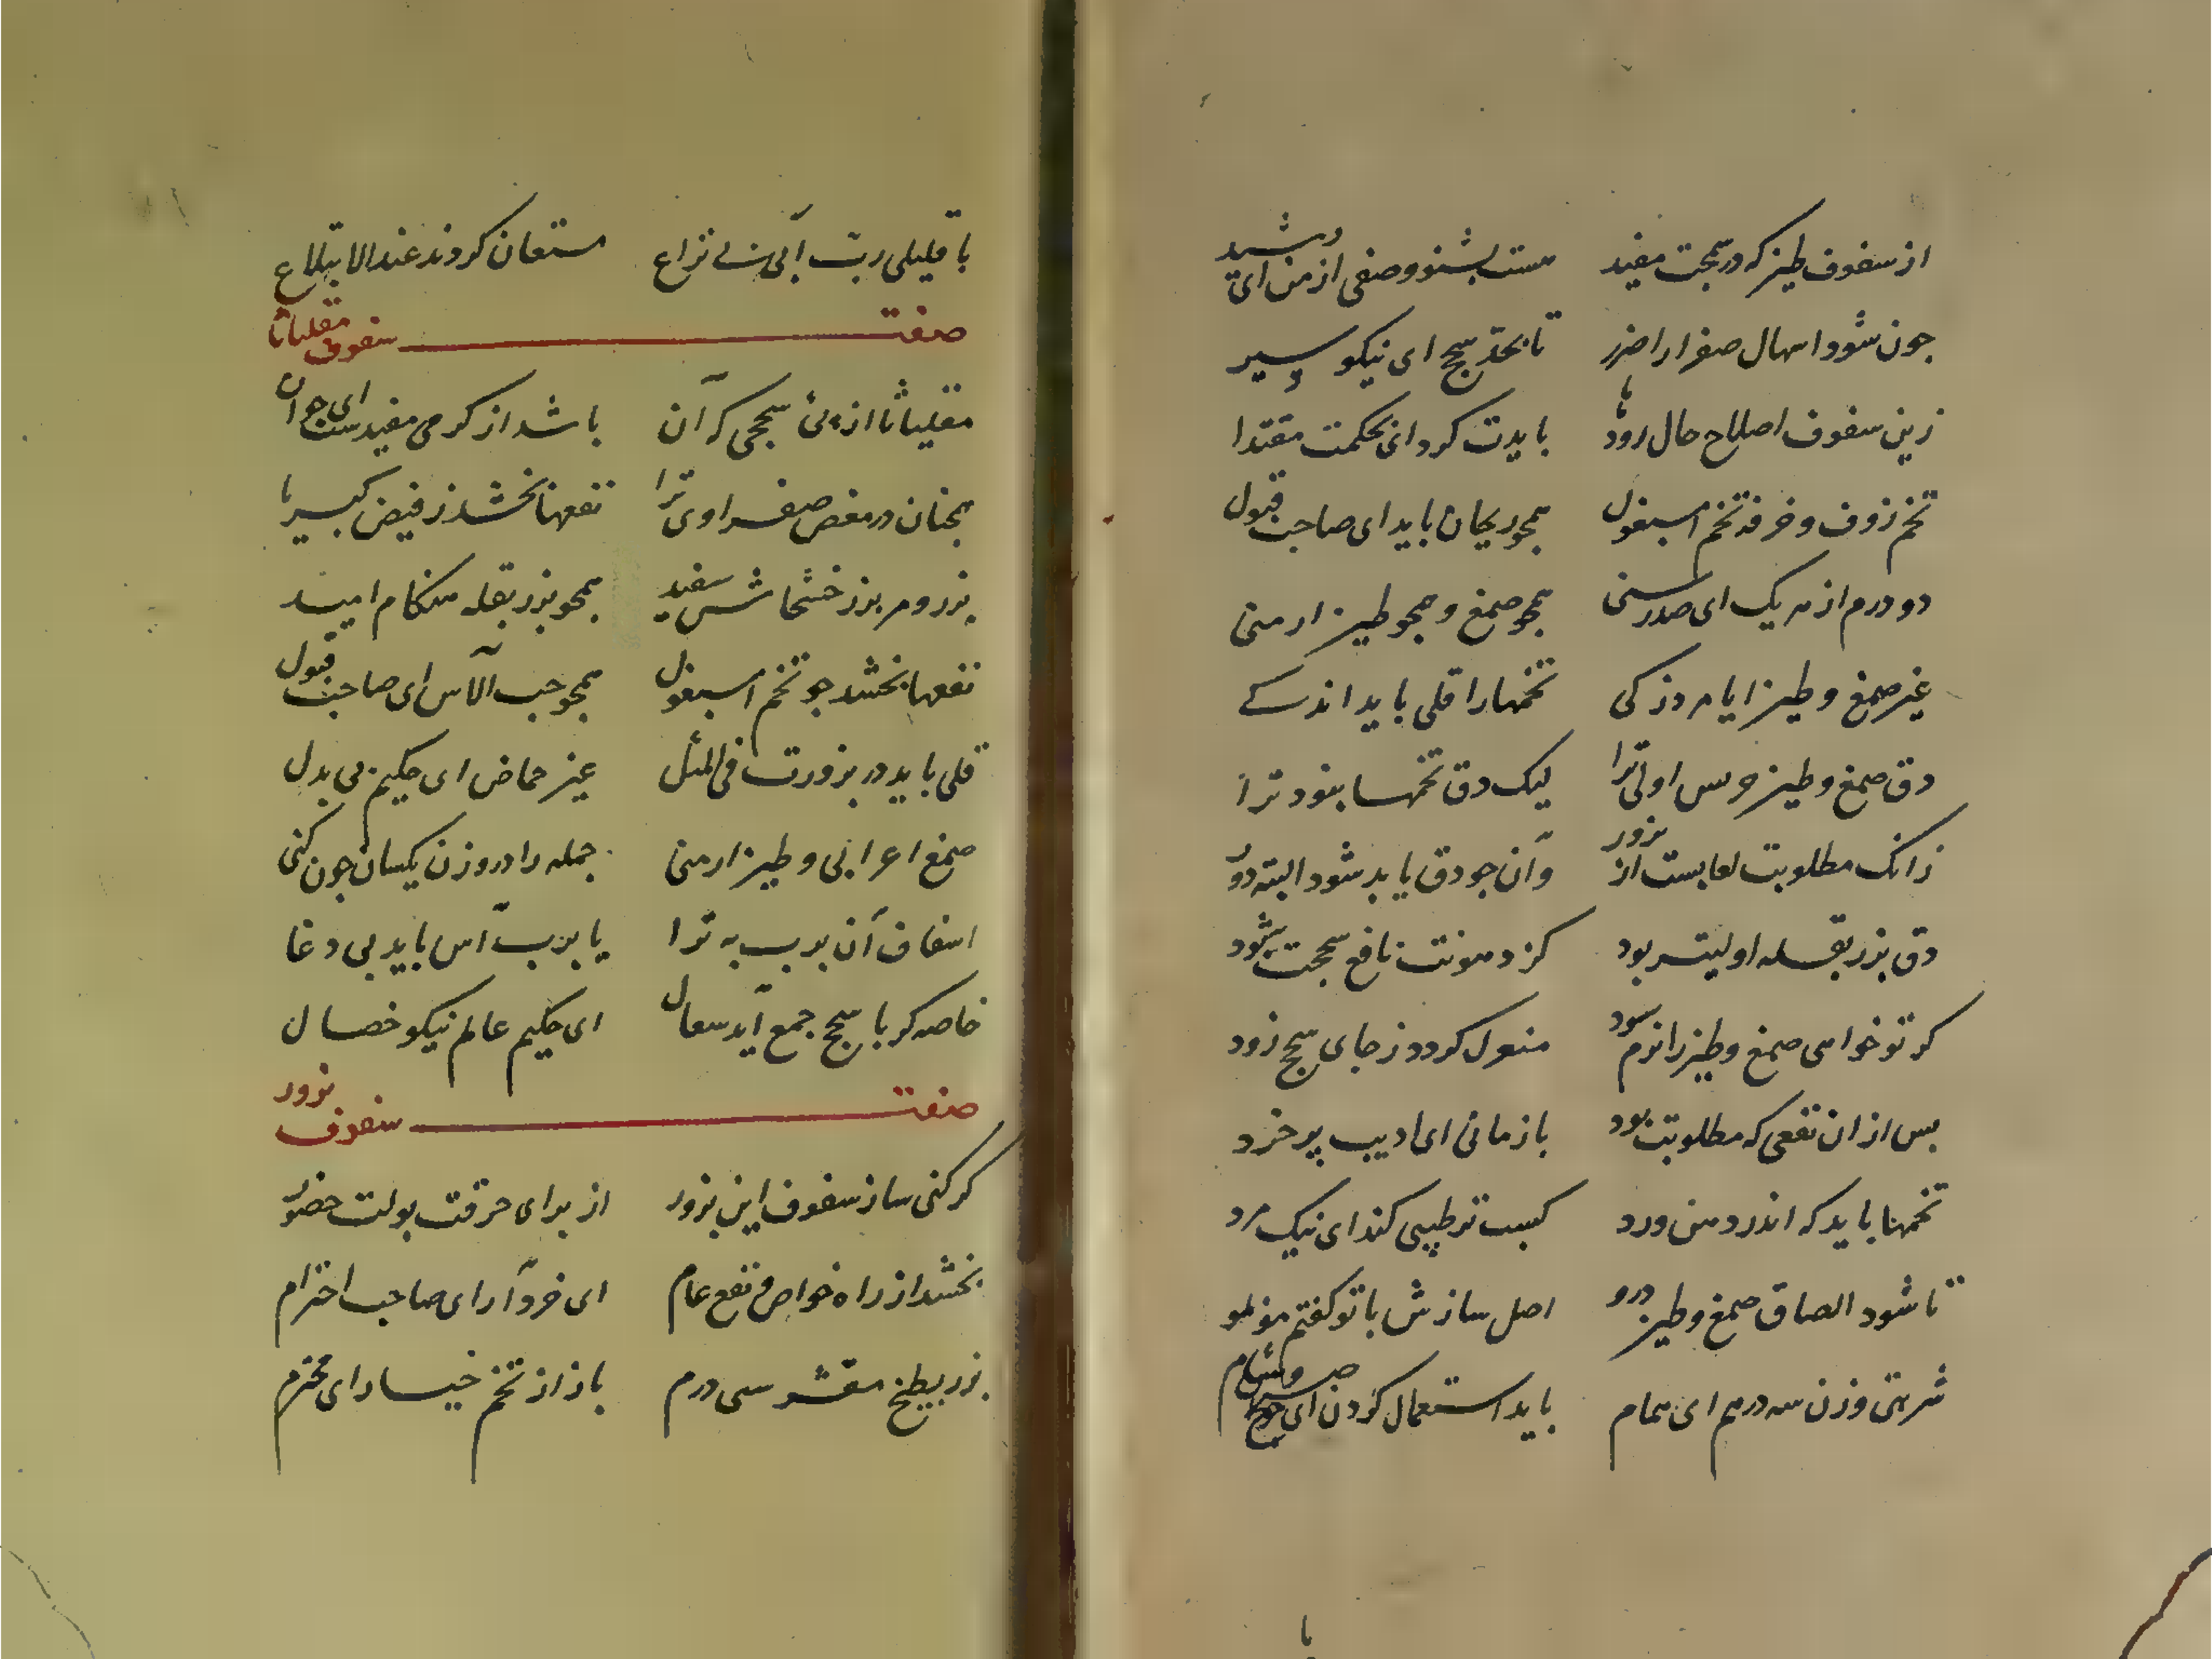 از سفوف طین که در سحجت مفید هست بشنو وصفی از من ای رشید
چون شود اسهال صفرا را ضرر تا بحد سحج ای نیکو سیر
زین سفوف اصلاح حال رودها بایدت کرد ای بحکمت مقتدا
تخم زوف و خرفه تخم اسبغول همچو ریحان باید ای صاحب قبول
دو درم از هر یک ای صدر سنی همچو صمغ و همچو طین ارمنی
غیر صمغ و طین ایا مرد زکی تخمها را قلی باید اندکے
دق صمغ و طین اولی ترا لیک دق تخمها نبود ترا
زانک مطلوبت لعابست از بزور وان چو دق یابد شود البته دور
دق بزر بقله اولیتر بود کز دهونت نافع سحجت شود
کر تو خواهی صمغ و طین را نرم سود منعزل کردد ز جای سحج زود
بس از ان نفعی که مطلوبت بود بازمانی ای ادیب پر خرد
تخمها باید که اندر دهن ورد کسب ترطیبی کند ای نیک مرد
تا شود الصاق صمغ و طین درو اصل سازش با تو کفتم موبمو
شربتی وزن سه درهم ای همام باید استعمال کردن صبح و شام
با
با قلیلی رب آبی بے نزاع مستعان کردند عند الابتلاع
صفت سفوف مقلیاثا
مقلیاثا از پی سحجی که آن باشد از کرمی مفیدست ای جوان
همچنان در مغص صفراوی ترا نفعها بخشد ز فیض کبریا
بزر و مر بزر خشخاش سفید همچو بزر بقله هنکام امید
نفعها بخشد چو تخم اسبغول همچو حب الآس ای صاحب قبول
قلی باید در بزورت فی المثل غیر حماض ای حکیم بی بدل
صمغ اعرابی و طین ارمنی جمله را در وزن یکسان چون کنی
اسفاف آن برب به ترا یا برب آس باید بی دغا
خاصه کر با سحج جمع آید سعال ای حکیم عالم نیکو خصال
صفت سفوف بزور
کر کنی ساز سفوف این بزور از برای حرقت بولت حضور
بخشد از راه خواص و نفع عام ای خرد آرای صاحب احترام
بزر بطیخ مقشر سی درم باز از تخم خیار ای محترم